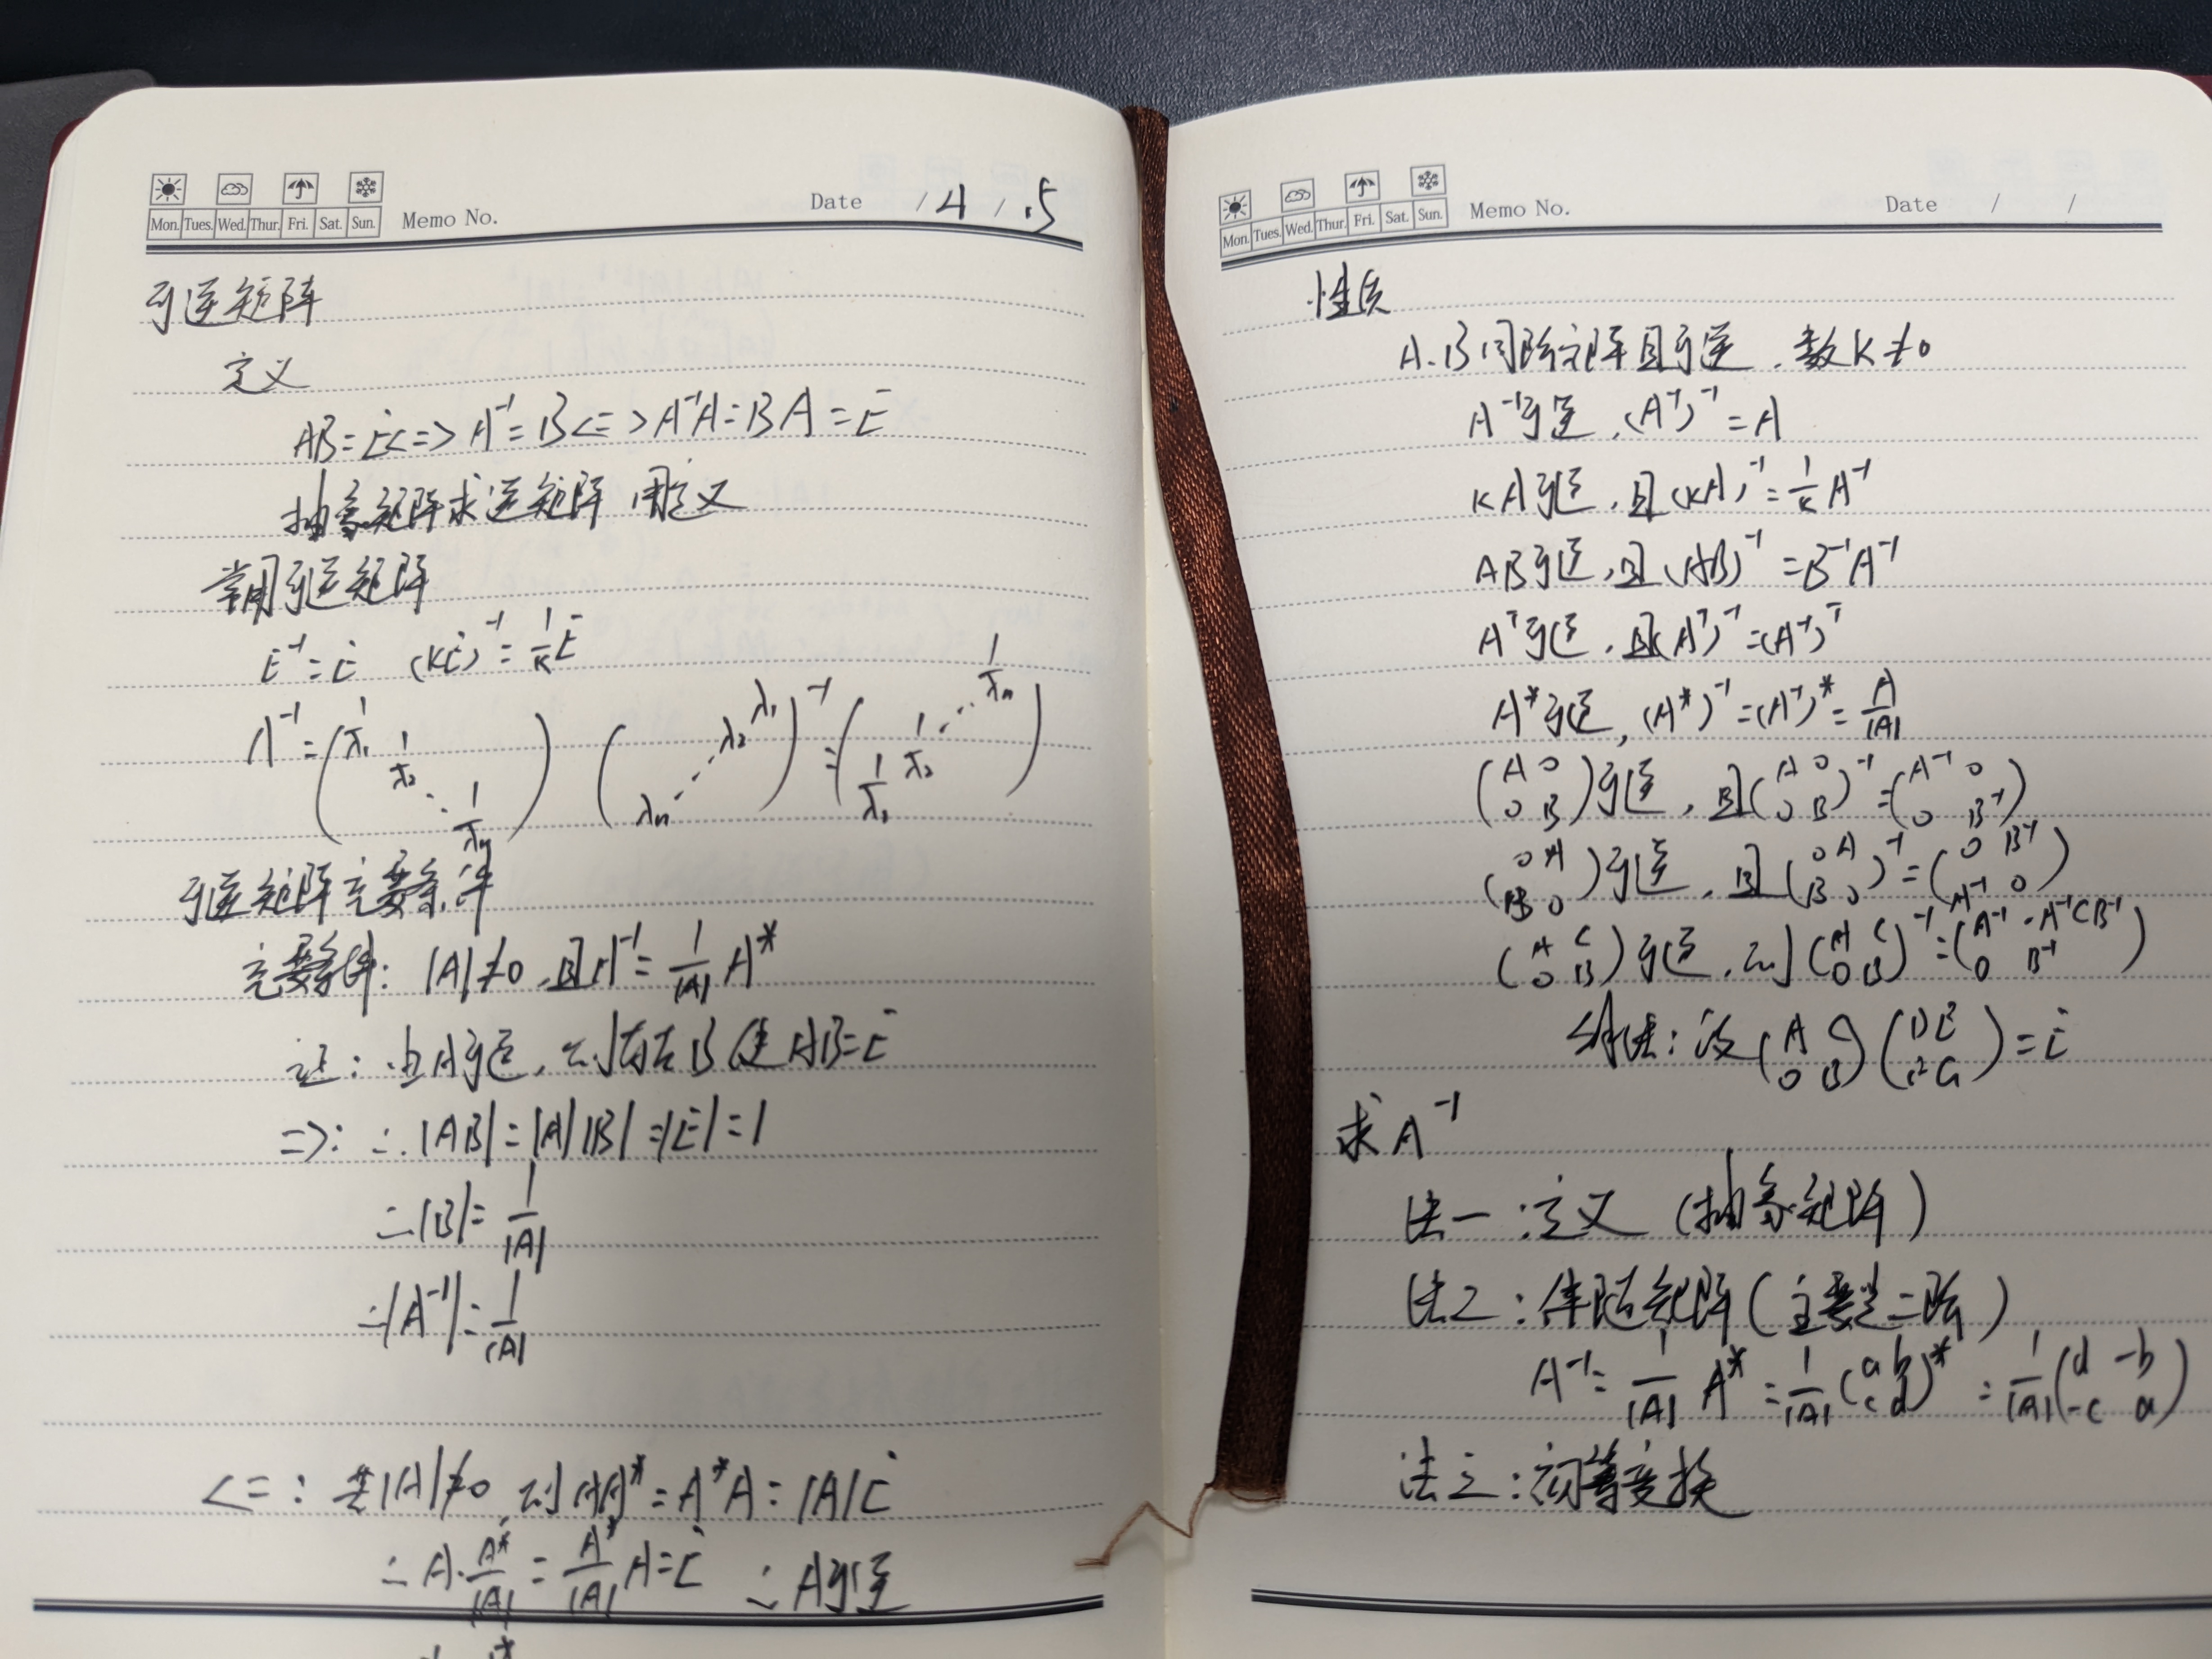 Mon. Tues. Wed. Thur. Fri. Sat. Sun. Memo No. Date / 4 / .5
可逆矩阵
定义
AB=E<=>A⁻¹=B<=>A⁻¹A=BA=E
抽象矩阵求逆矩阵 用定义
常用可逆矩阵
E⁻¹=E (KE)⁻¹=1/K E
Λ⁻¹=(1/λ₁ 1/λ₂ ⋱ 1/λn) (λ₁ λ₂ ⋰ λn)⁻¹=(1/λ₁ 1/λ₂ ⋰ 1/λn)
可逆矩阵充要条件
充要条件: |A|≠0 且A⁻¹=1/|A| A*
证: 由A可逆, 则存在B使AB=E
=>: ∴|AB|=|A||B|=|E|=1
∴|B|=1/|A|
∴|A⁻¹|=1/|A|
<=: 若|A|≠0 则AA*=A*A=|A|E
∴A·A*/|A|=A*/|A| A=E ∴A可逆
Mon. Tues. Wed. Thur. Fri. Sat. Sun. Memo No. Date / /
性质
A.B同阶矩阵且可逆, 数K≠0
A⁻¹可逆, (A⁻¹)⁻¹=A
KA可逆, 且(KA)⁻¹=1/K A⁻¹
AB可逆, 且(AB)⁻¹=B⁻¹A⁻¹
Aᵀ可逆, 且(Aᵀ)⁻¹=(A⁻¹)ᵀ
A*可逆, (A*)⁻¹=(A⁻¹)*=A/|A|
(A 0; 0 B)可逆, 且(A 0; 0 B)⁻¹=(A⁻¹ 0; 0 B⁻¹)
(0 A; B 0)可逆, 且(0 A; B 0)⁻¹=(0 B⁻¹; A⁻¹ 0)
(A C; 0 B)可逆, 则(A C; 0 B)⁻¹=(A⁻¹ -A⁻¹CB⁻¹; 0 B⁻¹)
法: 设(A C; 0 B)(D E; F G)=E
求A⁻¹
法一: 定义 (抽象矩阵)
法2: 伴随矩阵(主要是二阶)
A⁻¹=1/|A| A*=1/|A|(a b; c d)*=1/|A|(d -b; -c a)
法三: 初等变换